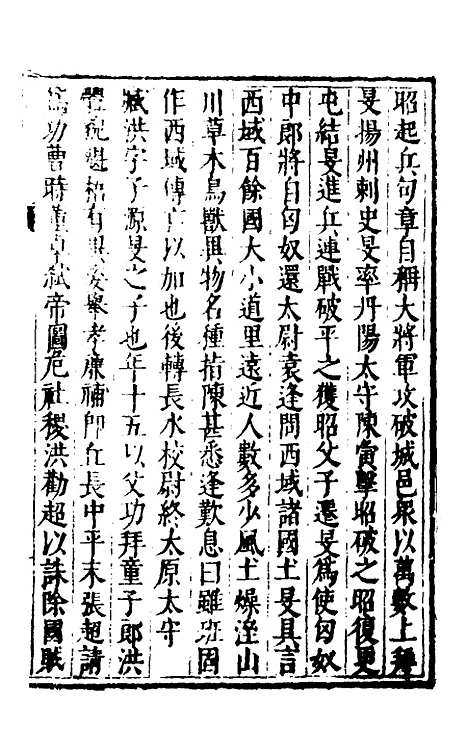 昭起兵句章自稱大將軍攻破城邑眾以萬數上拜
旻揚州刺史旻率丹陽太守陳寅擊昭破之昭復更
屯結旻進兵連戰破平之獲昭父子還旻為使匈奴
中郎將自匈奴還太尉袁逢問西域諸國土旻具言
西域百餘國大小道里遠近人數多少風土燥溼山
川草木鳥獸異物名種指陳甚悉逢歎息曰雖班固
作西域傳亡以加也後轉長水校尉終太原太守
臧洪字子源旻之子也年十五以父功拜童子郎洪
體貌魁梧有異姿舉孝廉補即丘長中平末張超請
為功曹時董卓弒帝圖危社稷洪勸超以誅除國賊